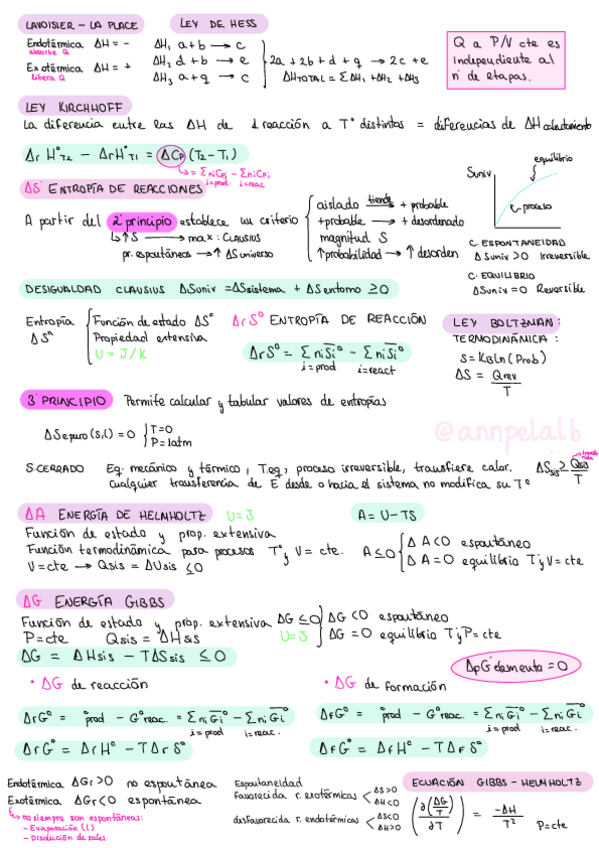 LAVOISIER - LA PLACE
LEY DE HESS
Endotérmica ΔH = -
absorbe Q
Exotérmica ΔH = +
libera Q
ΔH₁ a+b → c
ΔH₂ d+b → e
ΔH₃ a+q → c
2a + 2b + d + q → 2c + e
ΔHTOTAL = ΣΔH₁ + ΔH₂ + ΔH₃
Q a P/V cte es
independiente al
nº de etapas.
LEY KIRCHHOFF
La diferencia entre las ΔH de 1 reacción a Tº distintas = diferencias de ΔH calentamiento
ΔrHºT2 - ΔrHºT1 = ΔCp (T2-T1)
→ = ΣniCpi - ΣniCpi
i=prod. i=reac
ΔS ENTROPÍA DE REACCIONES
A partir del 2º principio establece un criterio
↳ ↑S → max: CLAUSIUS
pr. espontáneos → ↑ΔSuniverso
aislado tiende + probable
+probable → + desordenado
magnitud S
↑probabilidad → ↑desorden
Suniv
equilibrio
proceso
C. ESPONTANEIDAD
ΔSuniv >0 Irreversible
C. EQUILIBRIO
ΔSuniv = 0 Reversible
DESIGUALDAD CLAUSIUS ΔSuniv = ΔSsistema + ΔSentorno ≥ 0
Entropía
ΔSº
Función de estado ΔSº
Propiedad extensiva
U = J/K
ΔrSº ENTROPÍA DE REACCIÓN
ΔrSº = ΣniSiº - ΣniSiº
i=prod i=react
LEY BOLTZMAN:
TERMODINÁMICA:
S = KBln(Prob)
ΔS = Qrev
T
3º PRINCIPIO Permite calcular y tabular valores de entropías
ΔSepuro(s,l) = 0
T=0
P=1atm
@annpelalb
S.CERRADO Eq. mecánico y térmico, T.eq, proceso irreversible, transfiere calor.
Cualquier transferencia de E desde o hacia el sistema no modifica su Tº
ΔSsis ≥ Qsis
T
ΔA ENERGÍA DE HELMHOLTZ U=J
A = U-TS
Función de estado y prop. extensiva
Función termodinámica para procesos Tº y V = cte.
V=cte → Qsis = ΔUsis ≤0
A≤0
ΔA<0 espontáneo
ΔA=0 equilibrio Tº y V=cte
ΔG ENERGÍA GIBBS
Función de estado y prop. extensiva
P=cte Qsis = ΔHsis
ΔG = ΔHsis - TΔSsis ≤ 0
ΔG ≤0
U=J
ΔG <0 espontáneo
ΔG = 0 equilibrio Tº y P=cte
ΔfGº elemento = 0
• ΔG de reacción
• ΔG de formación
ΔrGº = ºprod - Gºreac. = ΣniGiº - ΣniGiº
i=prod i=reac.
ΔfGº = ºprod - Gºreac. = ΣniGiº - ΣniGiº
i=prod i=reac.
ΔrGº = ΔrHº - TΔrSº
ΔfGº = ΔfHº - TΔfSº
Endotérmica ΔGr>0 no espontánea
Exotérmica ΔGr<0 espontánea
↳ no siempre son espontáneas:
- Evaporación (l)
- Disolución de sales.
Espontaneidad
favorecida r. exotérmicas
ΔS>0
ΔH<0
desfavorecida r. endotérmicas
ΔS<0
ΔH>0
ECUACIÓN GIBBS - HELMHOLTZ
(∂(ΔG/T)/∂T) = -ΔH/T² P=cte